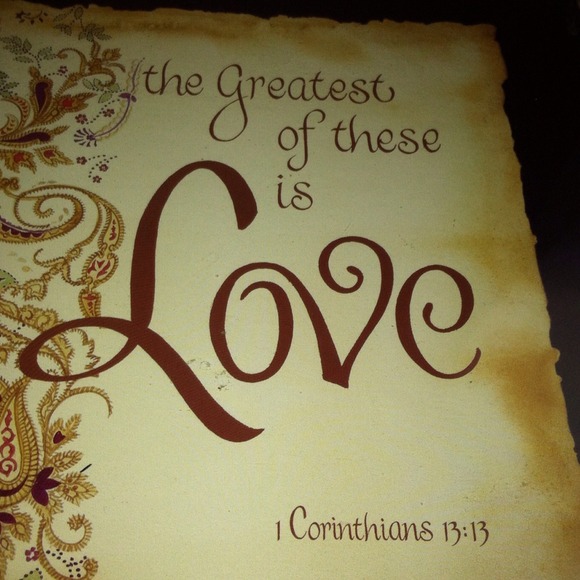 the Greatest
of these
is
Love
1 Corinthians 13:13